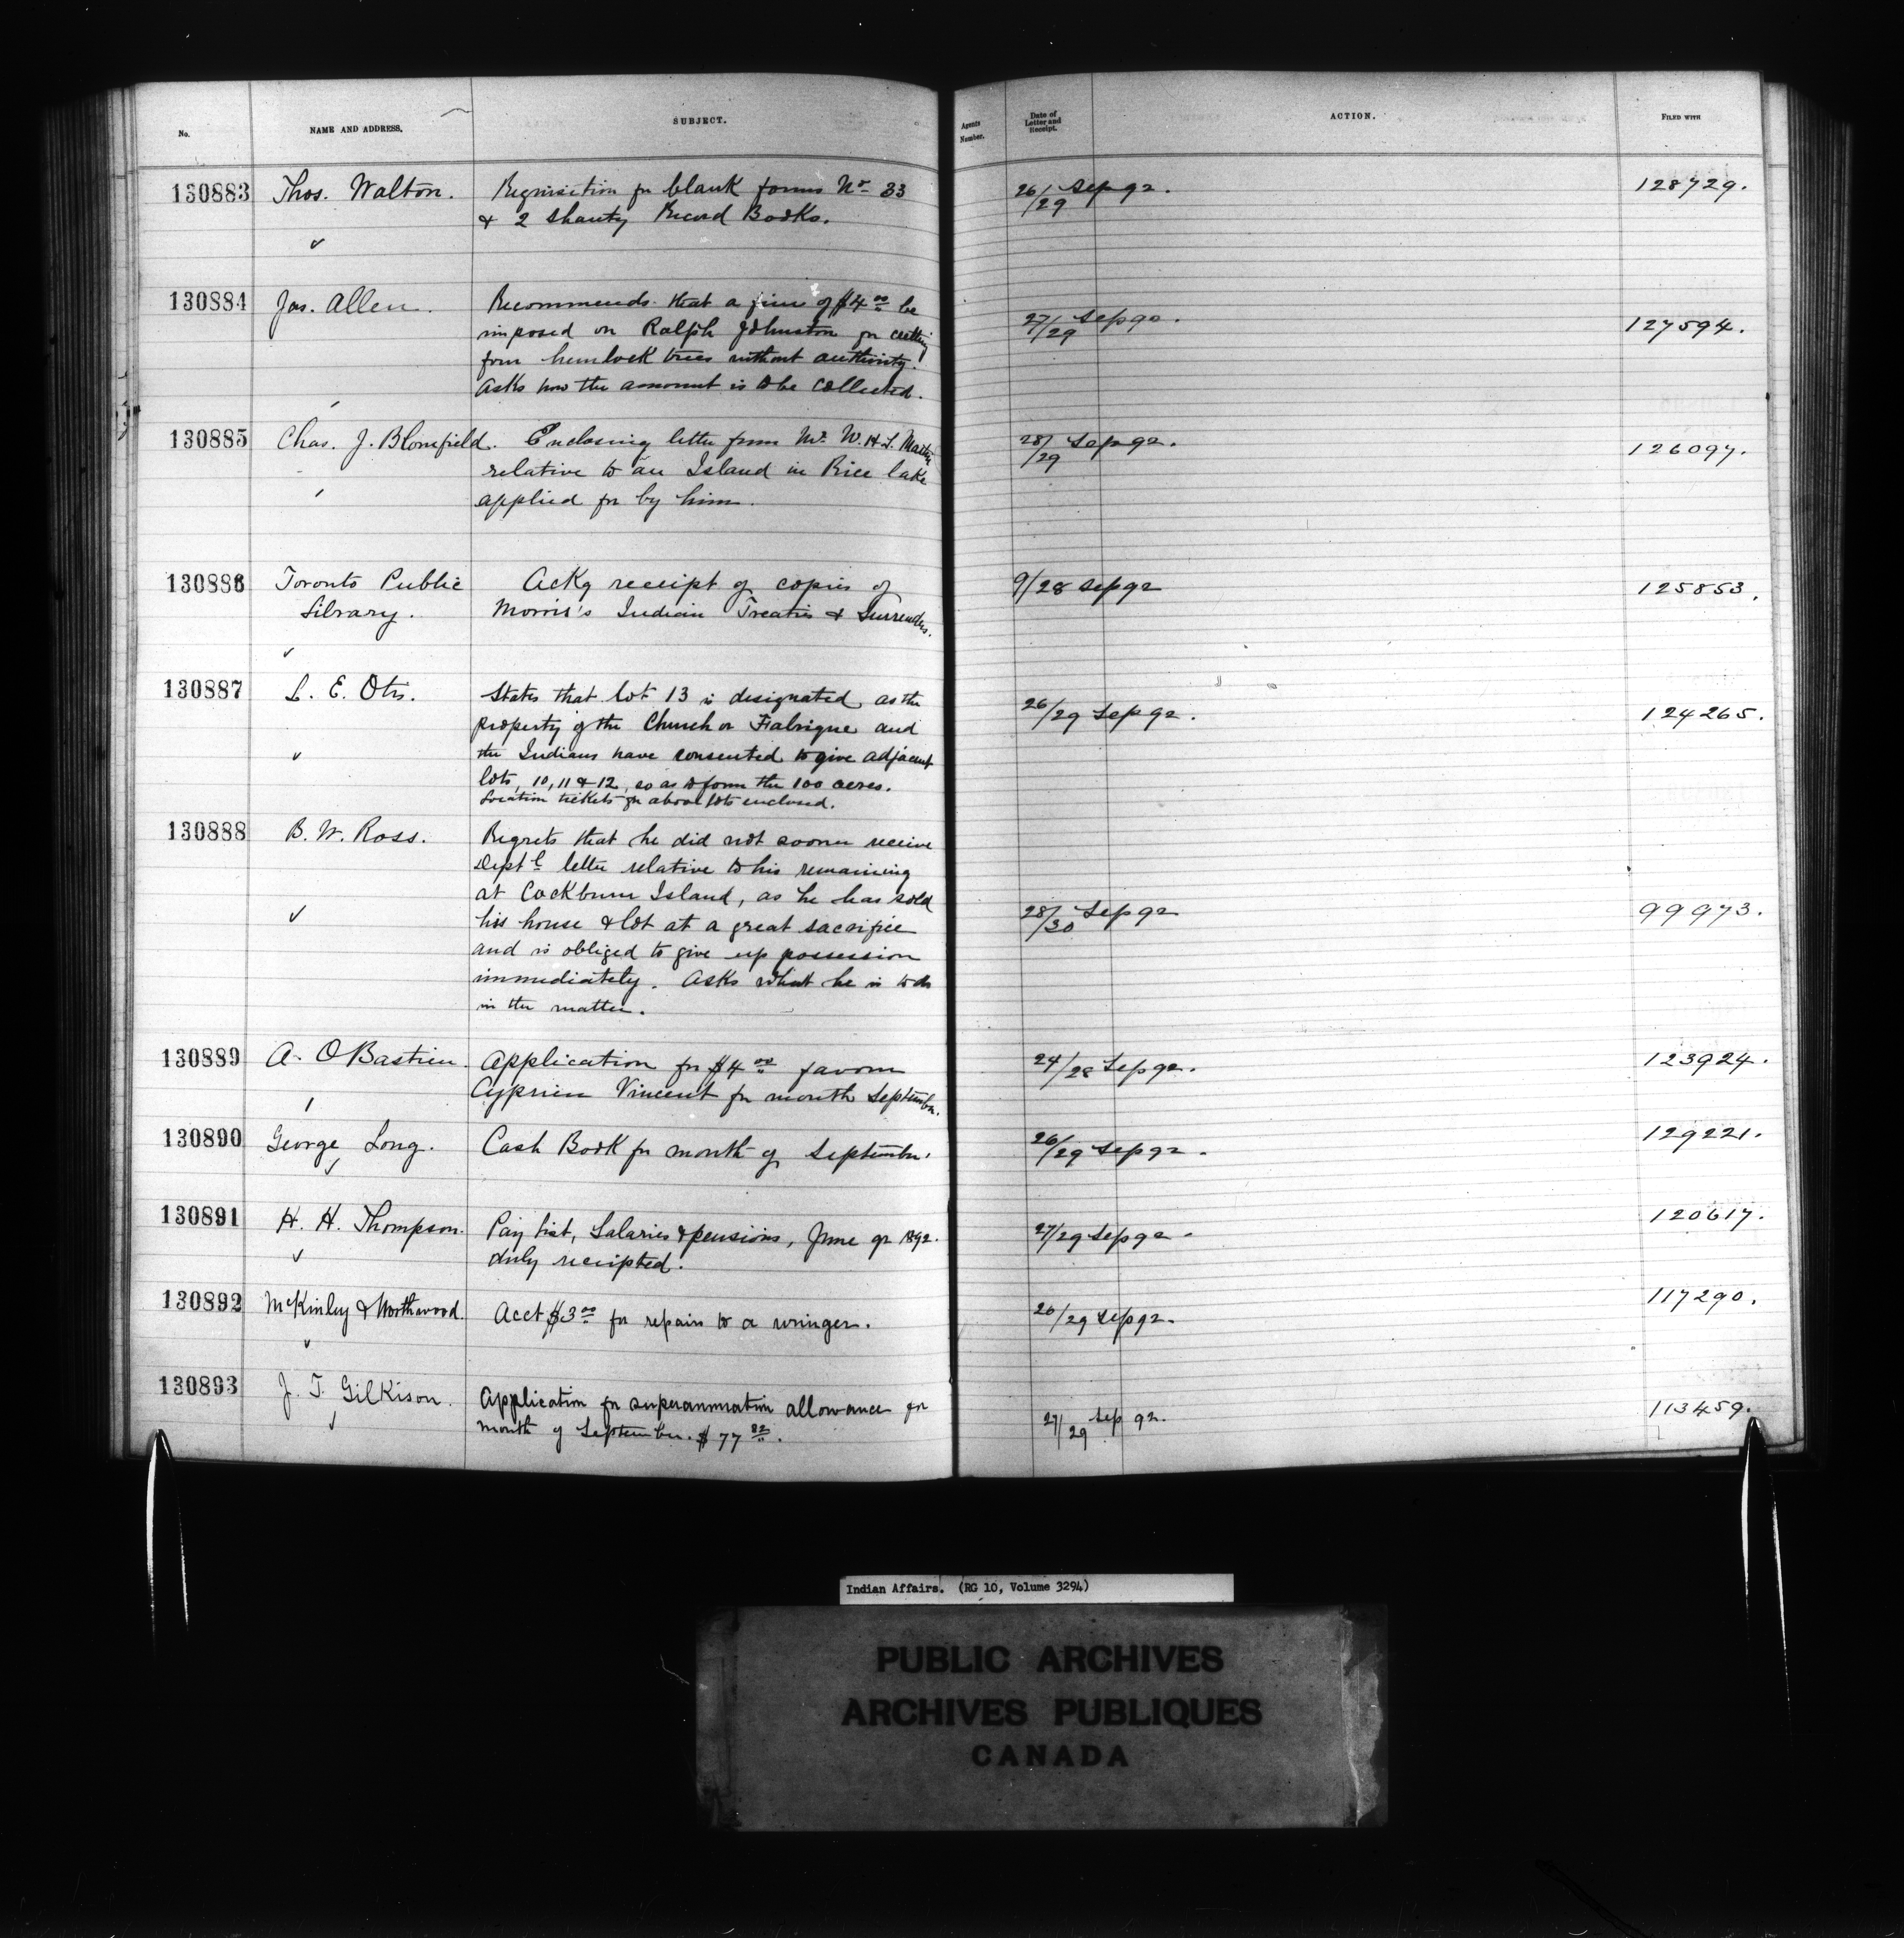 No.
NAME AND ADDRESS.
SUBJECT.
Agents Number.
Date of Letter and Receipt.
ACTION.
FILED WITH
130883 Thos. Walton. Requisition for blank forms No 33 26/29 Sep 92. 128729.
& 2 Shanty Record Books.
130884 Jas. Allen. Recommends that a fine of $4 00 be
imposed on Ralph Johnston for cutting 27/29 Sep 92. 127594.
four hemlock trees without authority.
Asks how the amount is to be collected.
130885 Chas. J. Blomfield. Enclosing letter from Mr. W. H. S. Martin 28/29 Sep 92. 126097.
relative to an Island in Rice lake
applied for by him.
130886 Toronto Public Ackg receipt of copies of 9/28 Sep 92 125853.
Library. Morris's Indian Treaties & Surrenders.
130887 L. E. Otis. States that lot 13 is designated as the
property of the Church or Fabrique and 26/29 Sep 92. 124265.
the Indians have consented to give adjacent
lots, 10, 11 & 12, so as to form the 100 acres.
Location tickets for above lots enclosed.
130888 B. W. Ross. Regrets that he did not sooner receive
Deptl letter relative to his remaining
at Cockburn Island, as he has sold
his house & lot at a great sacrifice 28/30 Sep 92 99973.
and is obliged to give up possession
immediately. Asks what he is to do
in the matter.
130889 A. O Bastien. Application for $4 00 favour 24/28 Sep 92. 123924.
Cyprien Vincent for month September.
130890 George Long. Cash Book for month of September. 26/29 Sep 92. 129221.
130891 H. H. Thompson. Pay list, Salaries & pensions, June qr 1892. 27/29 Sep 92. 120617.
duly receipted.
130892 McKinley & Northwood. Acct $3 00 for repairs to a wringer. 26/29 Sep 92. 117290.
130893 J. T. Gilkison. Application for superannuation allowance for
month of September. $77 82. 27/29 Sep 92. 113459.
Indian Affairs. (RG 10, Volume 3294)
PUBLIC ARCHIVES
ARCHIVES PUBLIQUES
CANADA